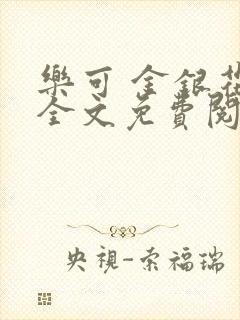 樂可 金銀花
全文免費閱
央視-索福瑞